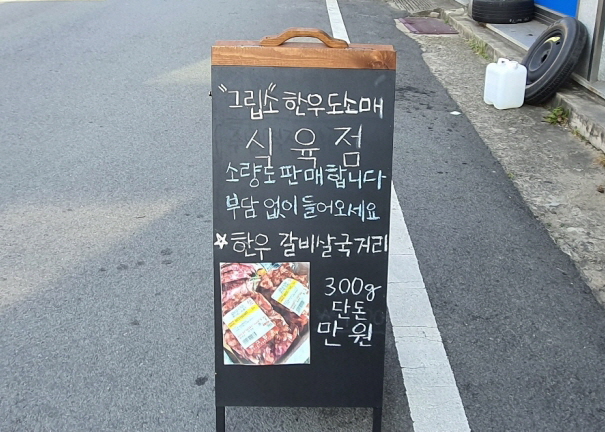 "그립소" 한우도소매
식육점
소량도판매합니다
부담 없이 들어오세요
☆한우 갈비살국거리
300g
단돈
만원